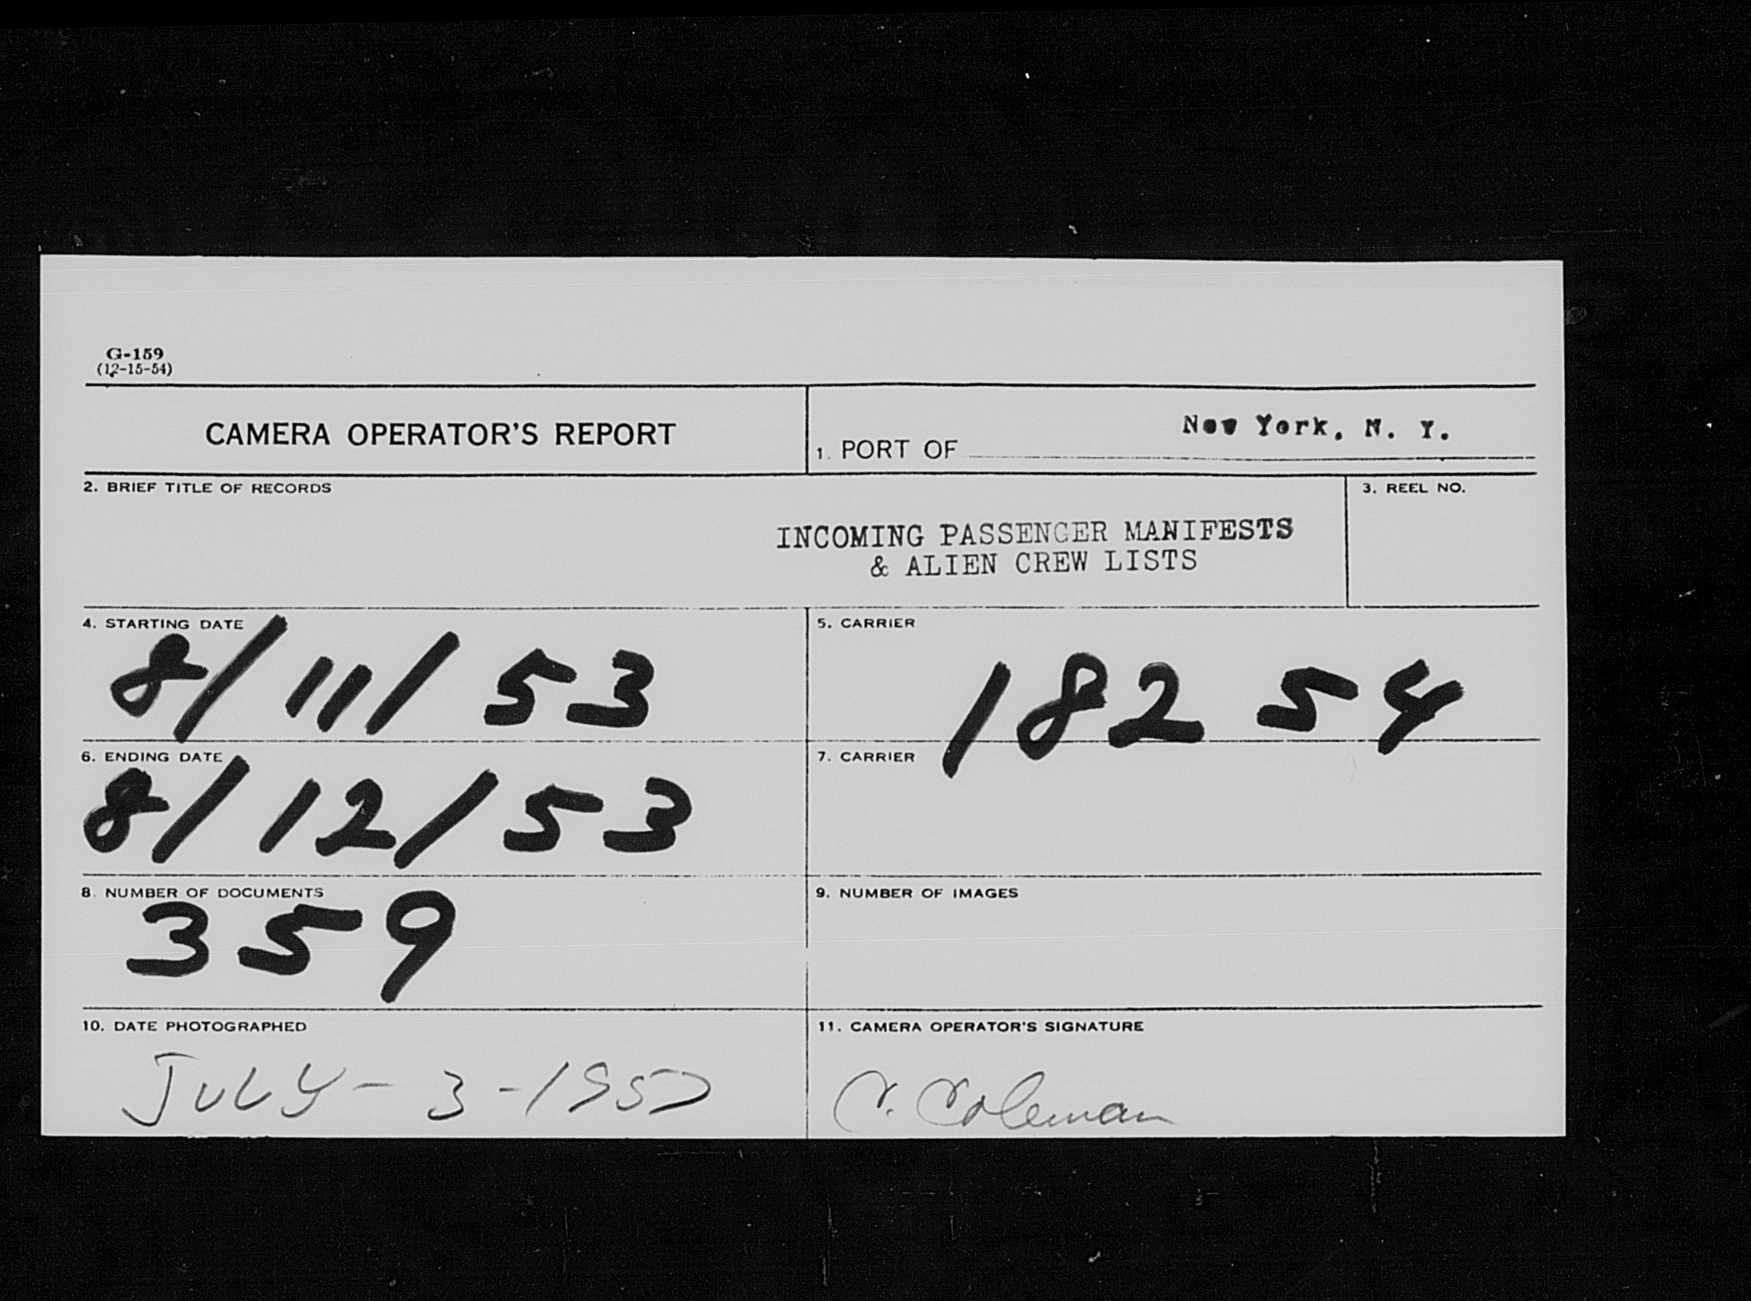 G-159
(12-15-54)
CAMERA OPERATOR'S REPORT
1. PORT OF New York, N. Y.
2. BRIEF TITLE OF RECORDS
INCOMING PASSENGER MANIFESTS
& ALIEN CREW LISTS
3. REEL NO.
4. STARTING DATE
8/11/53
5. CARRIER
18254
6. ENDING DATE
8/12/53
7. CARRIER
8. NUMBER OF DOCUMENTS
359
9. NUMBER OF IMAGES
10. DATE PHOTOGRAPHED
JULY-3-1957
11. CAMERA OPERATOR'S SIGNATURE
Coleman